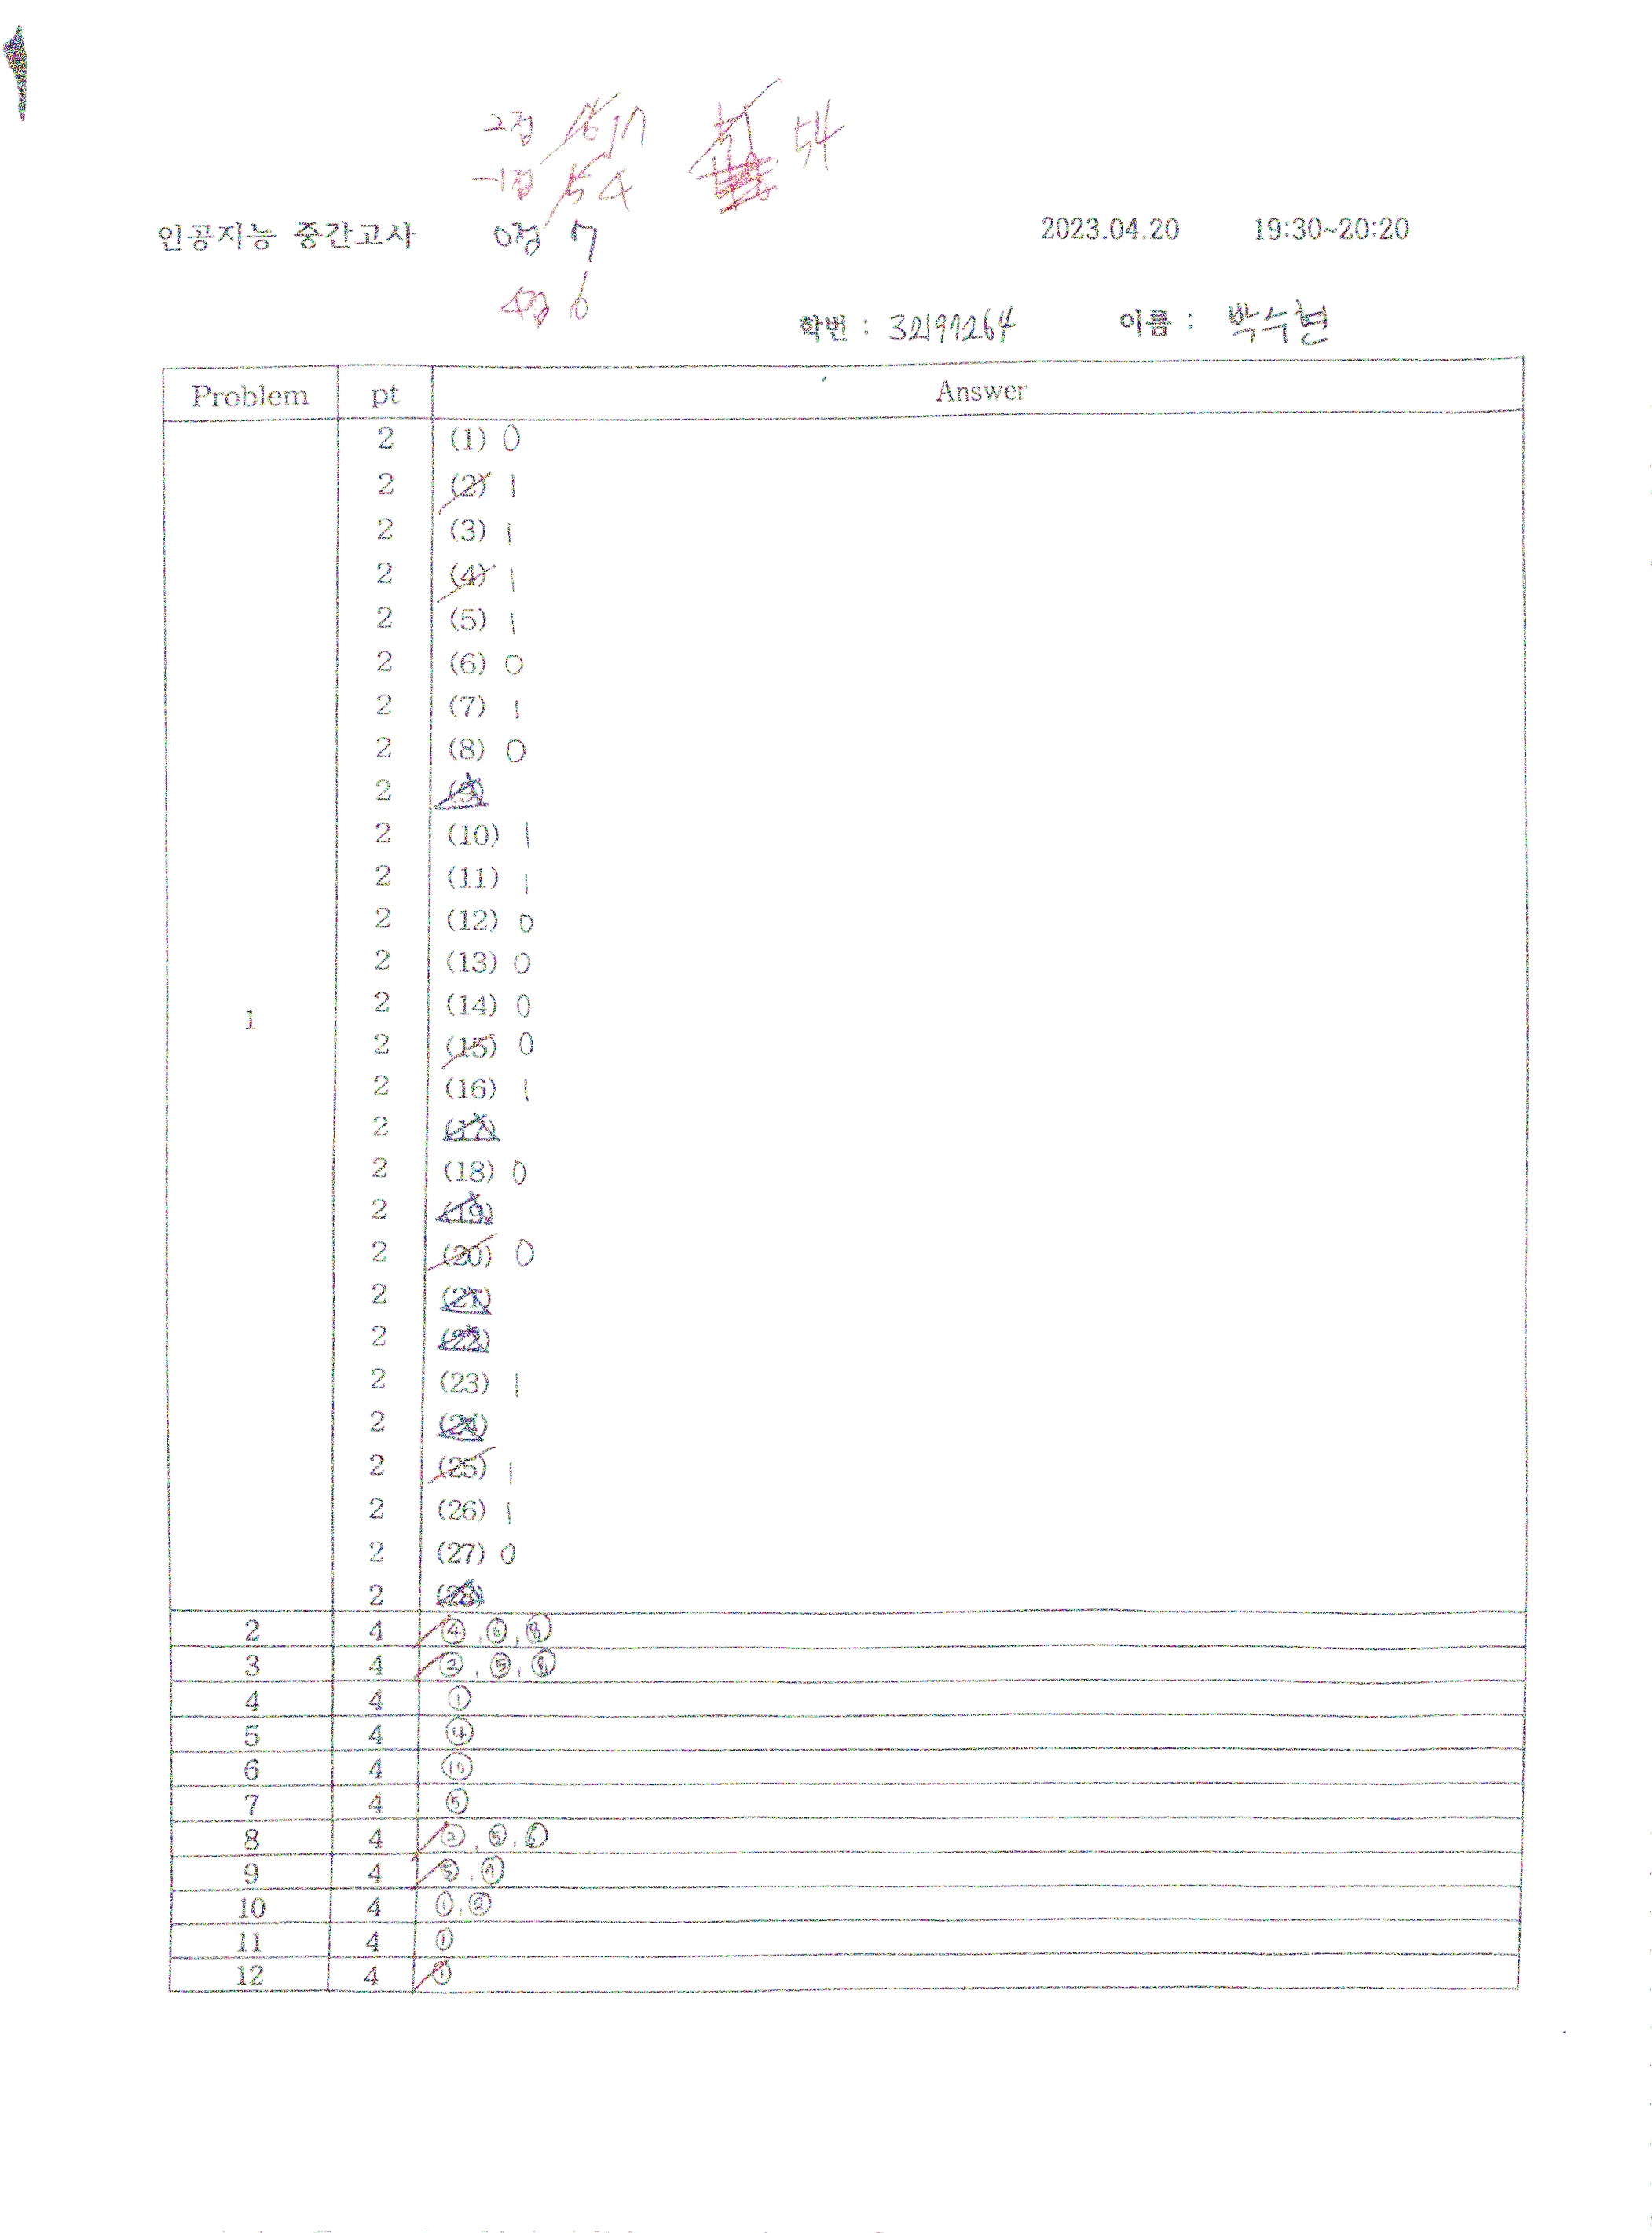 2점 16 17 51 54
-1점 5 4
인공지능 중간고사 0점 7 2023.04.20 19:30~20:20
4점 6
학번 : 32197264 이름 : 박수현
Problem pt Answer
1
2 (1) 0
2 (2) 1
2 (3) 1
2 (4) 1
2 (5) 1
2 (6) 0
2 (7) 1
2 (8) 0
2 (9)
2 (10) 1
2 (11) 1
2 (12) 0
2 (13) 0
2 (14) 0
2 (15) 0
2 (16) 1
2 (17)
2 (18) 0
2 (19)
2 (20) 0
2 (21)
2 (22)
2 (23) 1
2 (24)
2 (25) 1
2 (26) 1
2 (27) 0
2 (28)
2 4 ④, ⑥, ⑧
3 4 ②, ⑤, ⑧
4 4 ①
5 4 ④
6 4 ⑩
7 4 ⑤
8 4 ②, ⑤, ⑥
9 4 ⑤, ⑦
10 4 ①, ②
11 4 ①
12 4 ①